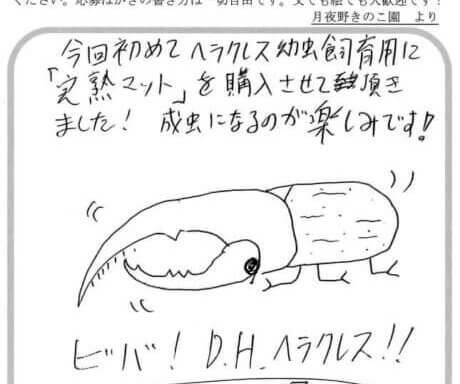 ください。応募はがきの書き方は一切自由です。文でも絵でも大歓迎です！
月夜野きのこ園　より
今回初めてヘラクレス幼虫飼育用に
「完熟マット」を購入させて頂き
ました！　成虫になるのが楽しみです！
ビバ！　D.H.ヘラクレス！！